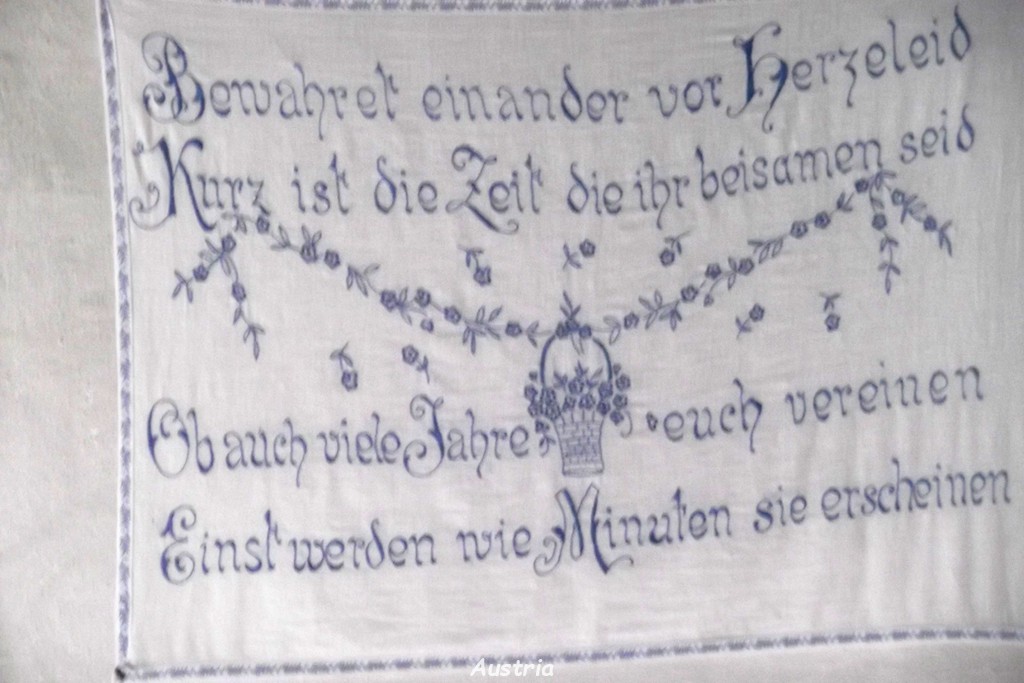 Bewahret einander vor Herzeleid
Kurz ist die Zeit die ihr beisamen seid
Ob auch viele Jahre euch vereinen
Einst werden wie Minuten sie erscheinen
Austria